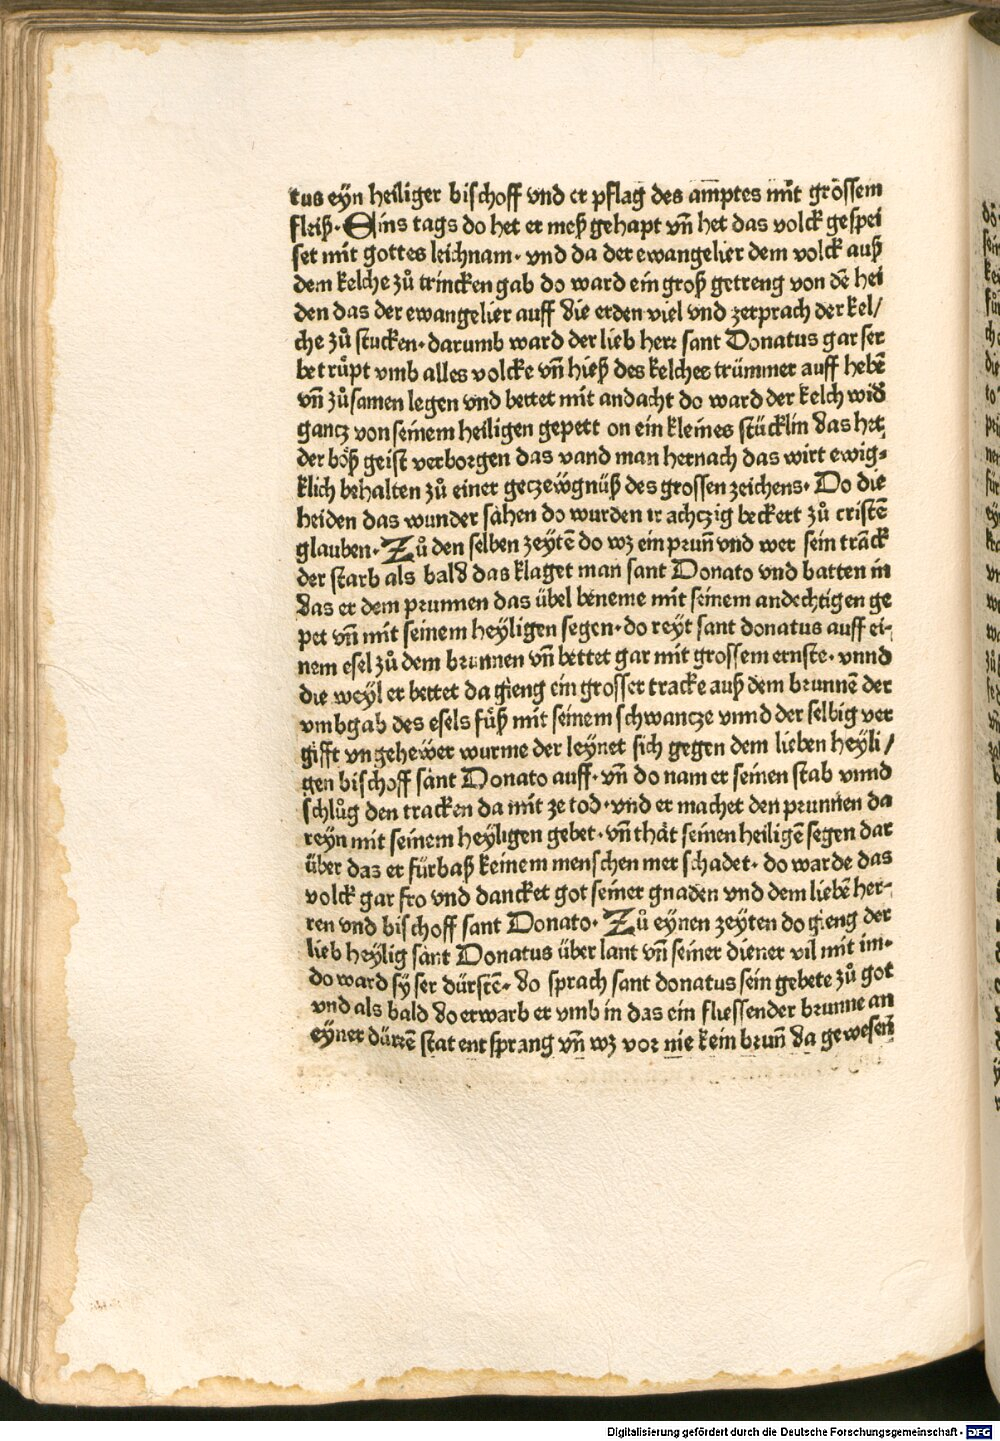 tus eyn heiliger bischoff vnd er pflag des am̄ptes mit grōssem
fleiß. Eins tags do het er meß gehapt vn̄ het das volck gespei
set mit gottes leichnam. vnd da der ewangelier dem volck auß
dem kelche zů trincken gab do ward ein groß getreng von dē hei
den das der ewangelier auff die erden viel vnd zerprach der kel/
che zů stucken. darumb ward der lieb herr sant Donatus gar ser
betrůpt vmb alles volcke vn̄ hieß des kelches trümmer auff hebē
vn̄ zůsamen legen vnd bettet mit andacht do ward der kelch wid
gancz von seinem heiligen gepett on ein kleines stücklin das het
der böß geist verborgen das vand man hernach das wirt ewig-
klich behalten zů einer geczewgnüß des grossen zeichens. Do die
heiden das wunder sahen do wurden ir achczig beckert zů cristē
glauben. Zů den selben zeytē do wz ein prun̄ vnd wer sein trāck
der starb als bald das klaget man sant Donato vnd batten in
das er dem prunnen das übel beneme mit seinem andechtigen ge
pet vn̄ mit seinem heyligen segen. do reyt sant donatus auff ei-
nem esel zů dem brunnen vn̄ bettet gar mit grossem ernste. vnnd
die weyl er bettet da gieng ein grosser tracke auß dem brunnē der
vmbgab des esels fůß mit seinem schwancze vnnd der selbig ver
gifft vngehewer wurme der leynet sich gegen dem lieben heyli/
gen bischoff sant Donato auff. vn̄ do nam er seinen stab vnnd
schlůg den tracken da mit ze tod. vnd er machet den prunnen da
reyn mit seinem heyligen gebet. vn̄ thät seinen heiligē segen dar
über daz er fürbaß keinem menschen mer schadet. do warde das
volck gar fro vnd dancket got seiner gnaden vnd dem liebē her-
ren vnd bischoff sant Donato. Zů eynen zeyten do gieng der
lieb heylig sant Donatus über lant vn̄ seiner diener vil mit im.
do ward sy ser dürstē. do sprach sant donatus sein gebete zů got
vnd als bald do erwarb er vmb in das ein fliessender brunne an
eyner dürrē stat entsprang vn̄ wz vor nie kein brun̄ da gewesen
Digitalisierung gefördert durch die Deutsche Forschungsgemeinschaft - DFG